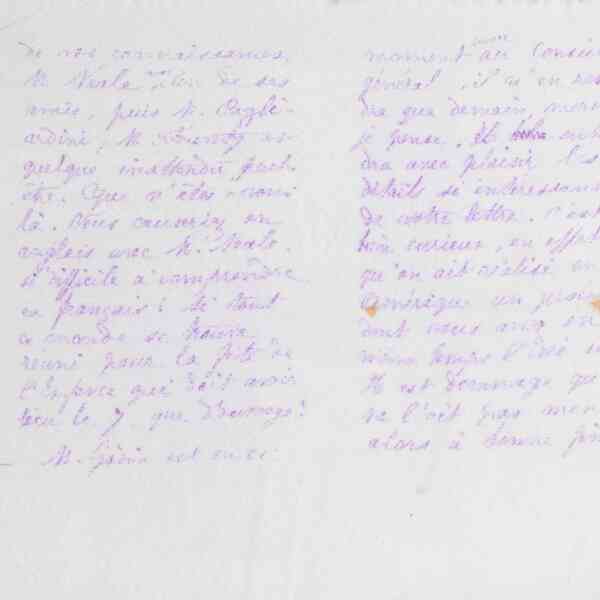 de nos connaissances.
M. Neale, l'un de ses
amis, puis M. Cagli-
ardini, M.
quelque inattendu peut
être. Que n'êtes-vous
là. Vous causeriez en
anglais avec M. Neale.
si difficile à comprendre
en français! Si tout
ce monde se trouve
réuni pour la fête de
l'Enfance qui doit avoir
lieu le 7, que d'
M. Godin est en ce
moment au Conseil
général, il n'en
dra que demain,
je pense. Et
dra avec plaisir les
détails si
de votre lettre. C'est
bien curieux, en effet
qu'on ait réalisé en
Amérique un
dont vous avez eu
même temps l'idée
Il est dommage qu
ne l'ait pas
alors à bonne